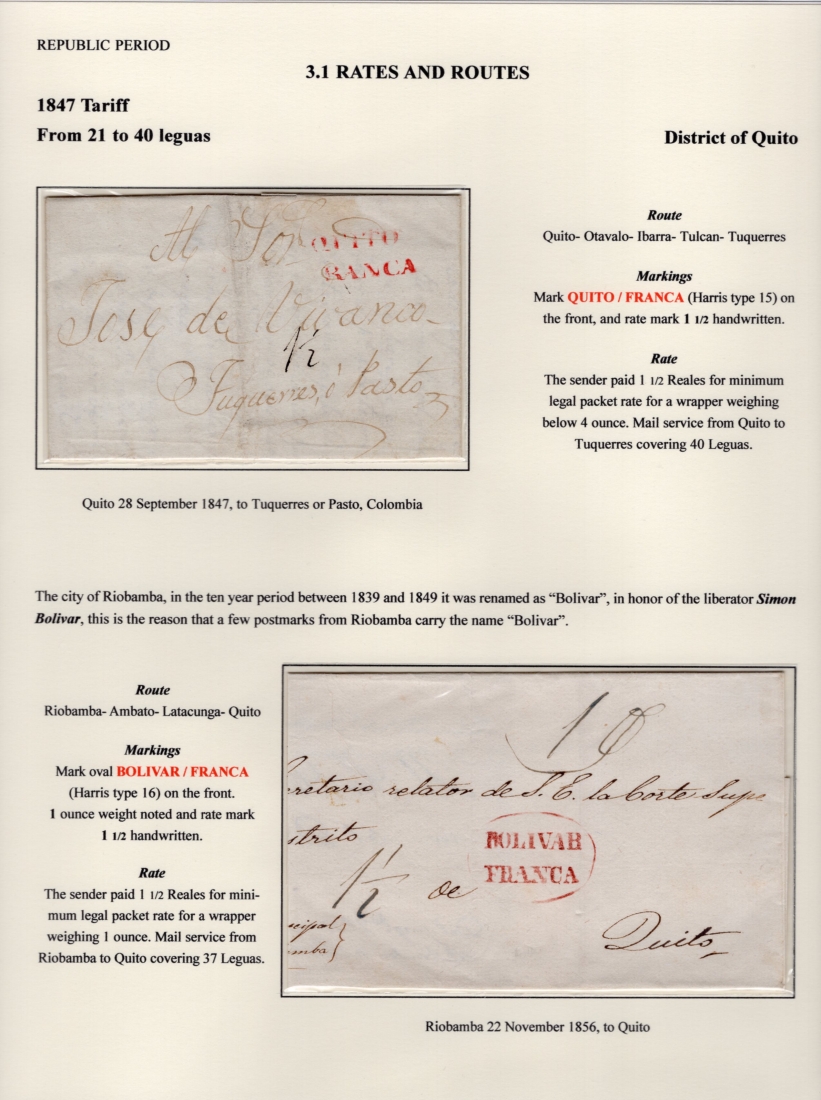 REPUBLIC PERIOD
3.1 RATES AND ROUTES
1847 Tariff
From 21 to 40 leguas
District of Quito
Al Sor
QUITO
RANCA
Jose de Vivanco
1½
Tuquerres, ó Pasto
Quito 28 September 1847, to Tuquerres or Pasto, Colombia
Route
Quito- Otavalo- Ibarra- Tulcan- Tuquerres
Markings
Mark QUITO / FRANCA (Harris type 15) on
the front, and rate mark 1 1/2 handwritten.
Rate
The sender paid 1 1/2 Reales for minimum
legal packet rate for a wrapper weighing
below 4 ounce. Mail service from Quito to
Tuquerres covering 40 Leguas.
The city of Riobamba, in the ten year period between 1839 and 1849 it was renamed as “Bolivar”, in honor of the liberator Simon
Bolivar, this is the reason that a few postmarks from Riobamba carry the name “Bolivar”.
Route
Riobamba- Ambato- Latacunga- Quito
Markings
Mark oval BOLIVAR / FRANCA
(Harris type 16) on the front.
1 ounce weight noted and rate mark
1 1/2 handwritten.
Rate
The sender paid 1 1/2 Reales for mini-
mum legal packet rate for a wrapper
weighing 1 ounce. Mail service from
Riobamba to Quito covering 37 Leguas.
1
cretario relator de S. E. la Corte Supe
strito
BOLIVAR
FRANCA
1½ de
cipal
mba
Quito
Riobamba 22 November 1856, to Quito